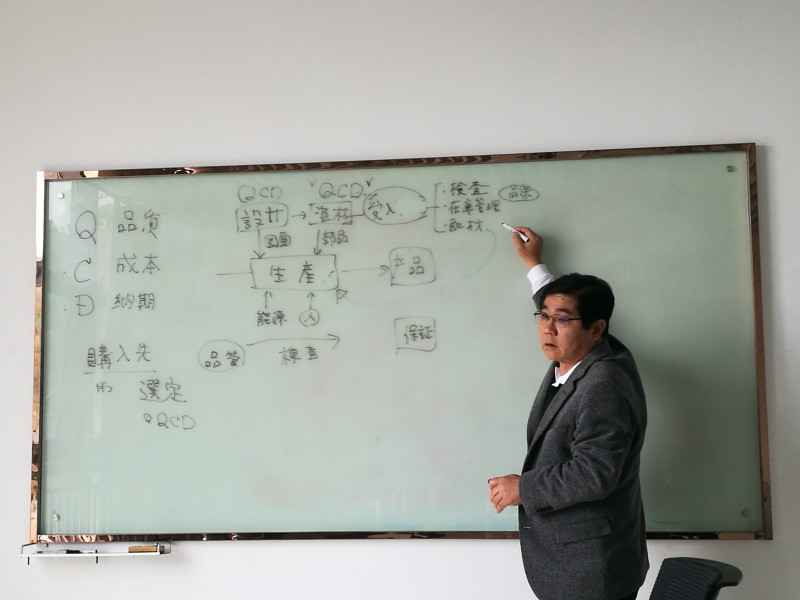 Q 品质
・C 成本
・D 納期
購入先
選定
QCD
QCD
QCD
設計
資材
受入
・検査
品保
・在庫管理
・配材
図面
部品
生産
产品
能源
人
品管
検查
保証